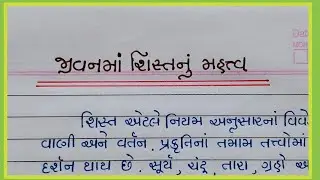 જીવનમાં શિસ્તનું મહત્ત્વ
શિસ્ત એટલે નિયમ અનુસારનાં
વાણી અને વર્તન. પ્રકૃતિનાં તમામ તત્ત્વોમાં
દર્શન થાય છે. સૂર્ય, ચંદ્ર, તારા, ગ્રહો